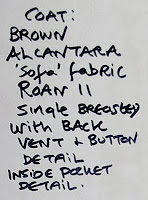 COAT:
BROWN
ALCANTARA
'Sofa' fabric
ROAN 11
Single BREASTEY
With BACK
VENT + BUTTON
DETAIL
INSIDE POCKET
DETAIL.